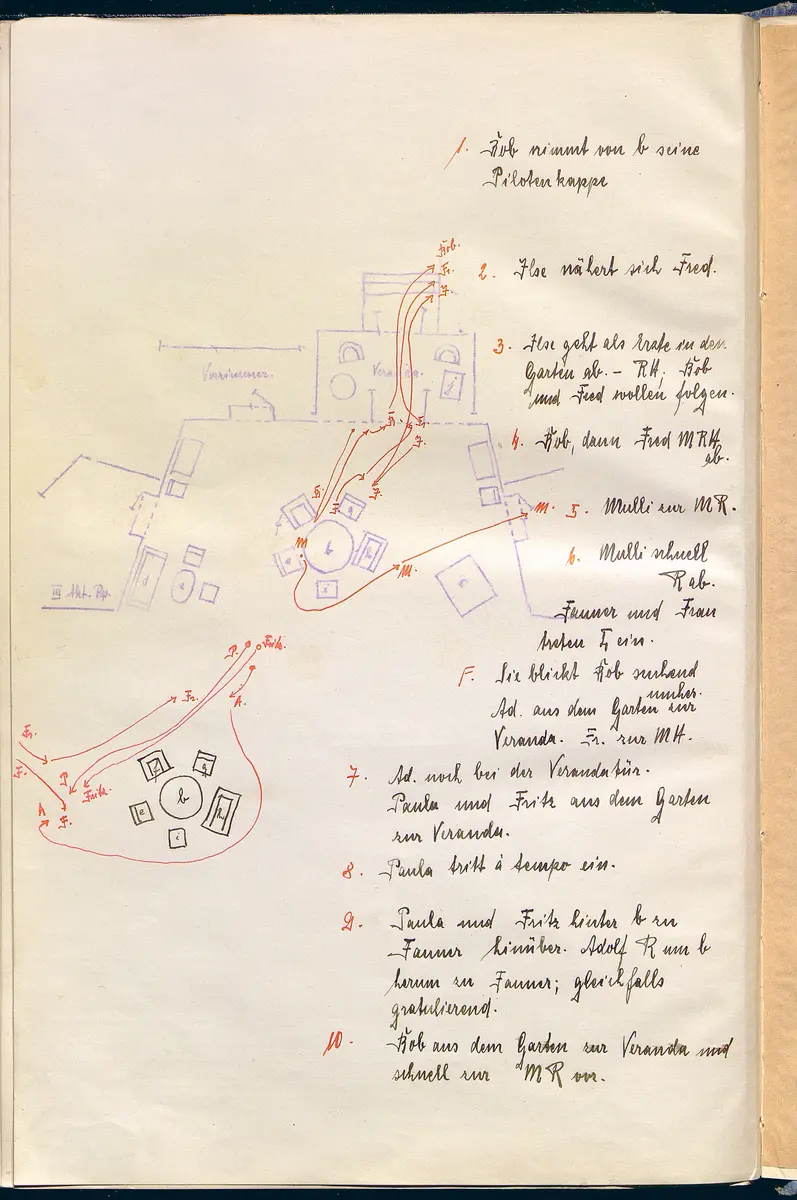 1. Bob nimmt von b seine
Pilotenkappe
2. Ilse nähert sich Fred.
3. Ilse geht als Erste in den
Garten ab. – RH, Bob
und Fred wollen folgen.
4. Bob, dann Fred MRH
ab.
5. Mulli zur MR.
6. Mulli schnell
R ab.
Fanner und Frau
treten L ein.
F. Sie blickt Bob suchend
umher.
Ad. aus dem Garten zur
Veranda. Fr. zur MH.
7. Ad. noch bei der Verandatür.
Paula und Fritz aus dem Garten
zur Veranda.
8. Paula tritt à tempo ein.
9. Paula und Fritz hinter b zu
Fanner hinüber. Adolf R um b
herum zu Fanner; gleichfalls
gratulierend.
10. Bob aus dem Garten zur Veranda und
schnell zur MR vor.
Bob.
Fr.
Vorzimmer.
Veranda.
M.
M
M.
b
h
i
e
g
d
a
c
III. Akt.
P.
Fritz.
A.
Fr.
Fr.
F.
P
Fritz.
A
F.
g
b
h
e
i